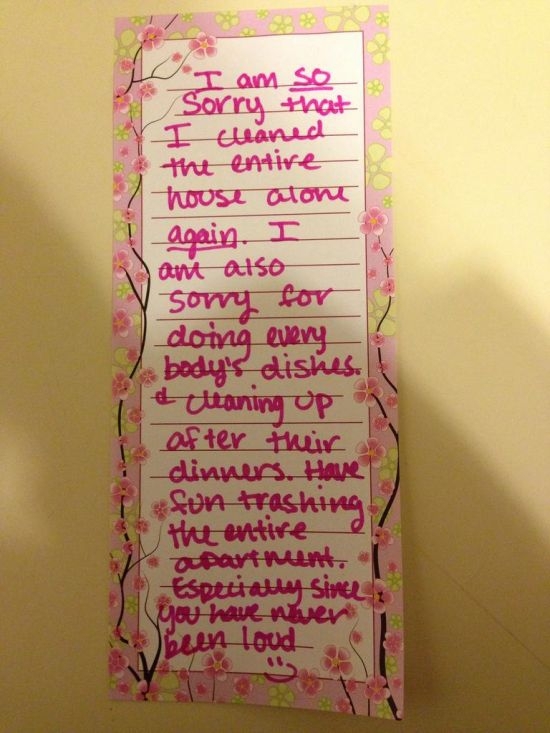 I am so
sorry that
I cleaned
the entire
house alone
again. I
am also
sorry for
doing every
body's dishes.
& cleaning up
after their
dinners. Have
fun trashing
the entire
apartment.
Especially since
you have never
been loud